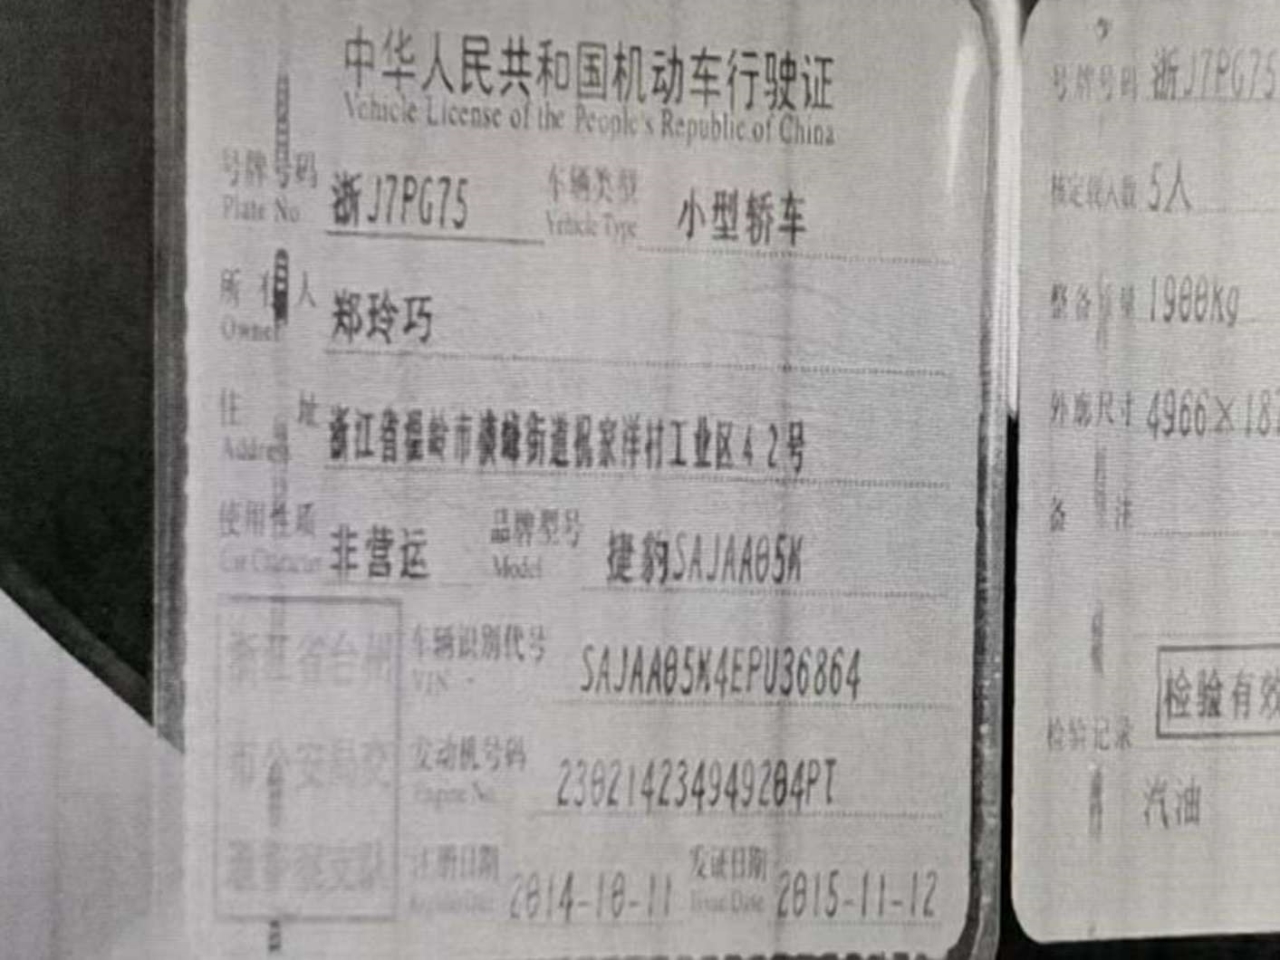 中华人民共和国机动车行驶证
Vehicle License of the People's Republic of China
号牌号码 浙J7PG75 车辆类型 小型轿车
Plate No. Vehicle Type
所有人 郑玲巧
Owner
住址 浙江省温岭市横峰街道祝家洋村工业区42号
Address
使用性质 非营运 品牌型号 捷豹SAJAA05K
Use Character Model
车辆识别代号 SAJAA05K4EPU36864
VIN
发动机号码 230214234949204PT
Engine No.
注册日期 2014-10-11 发证日期 2015-11-12
Register Date Issue Date
浙江省台州
市公安局交
通警察支队
号牌号码 浙J7PG75
核定载人数 5人
整备质量 1900Kg
外廓尺寸 4966×18
备注
检验有效
检验记录
汽油